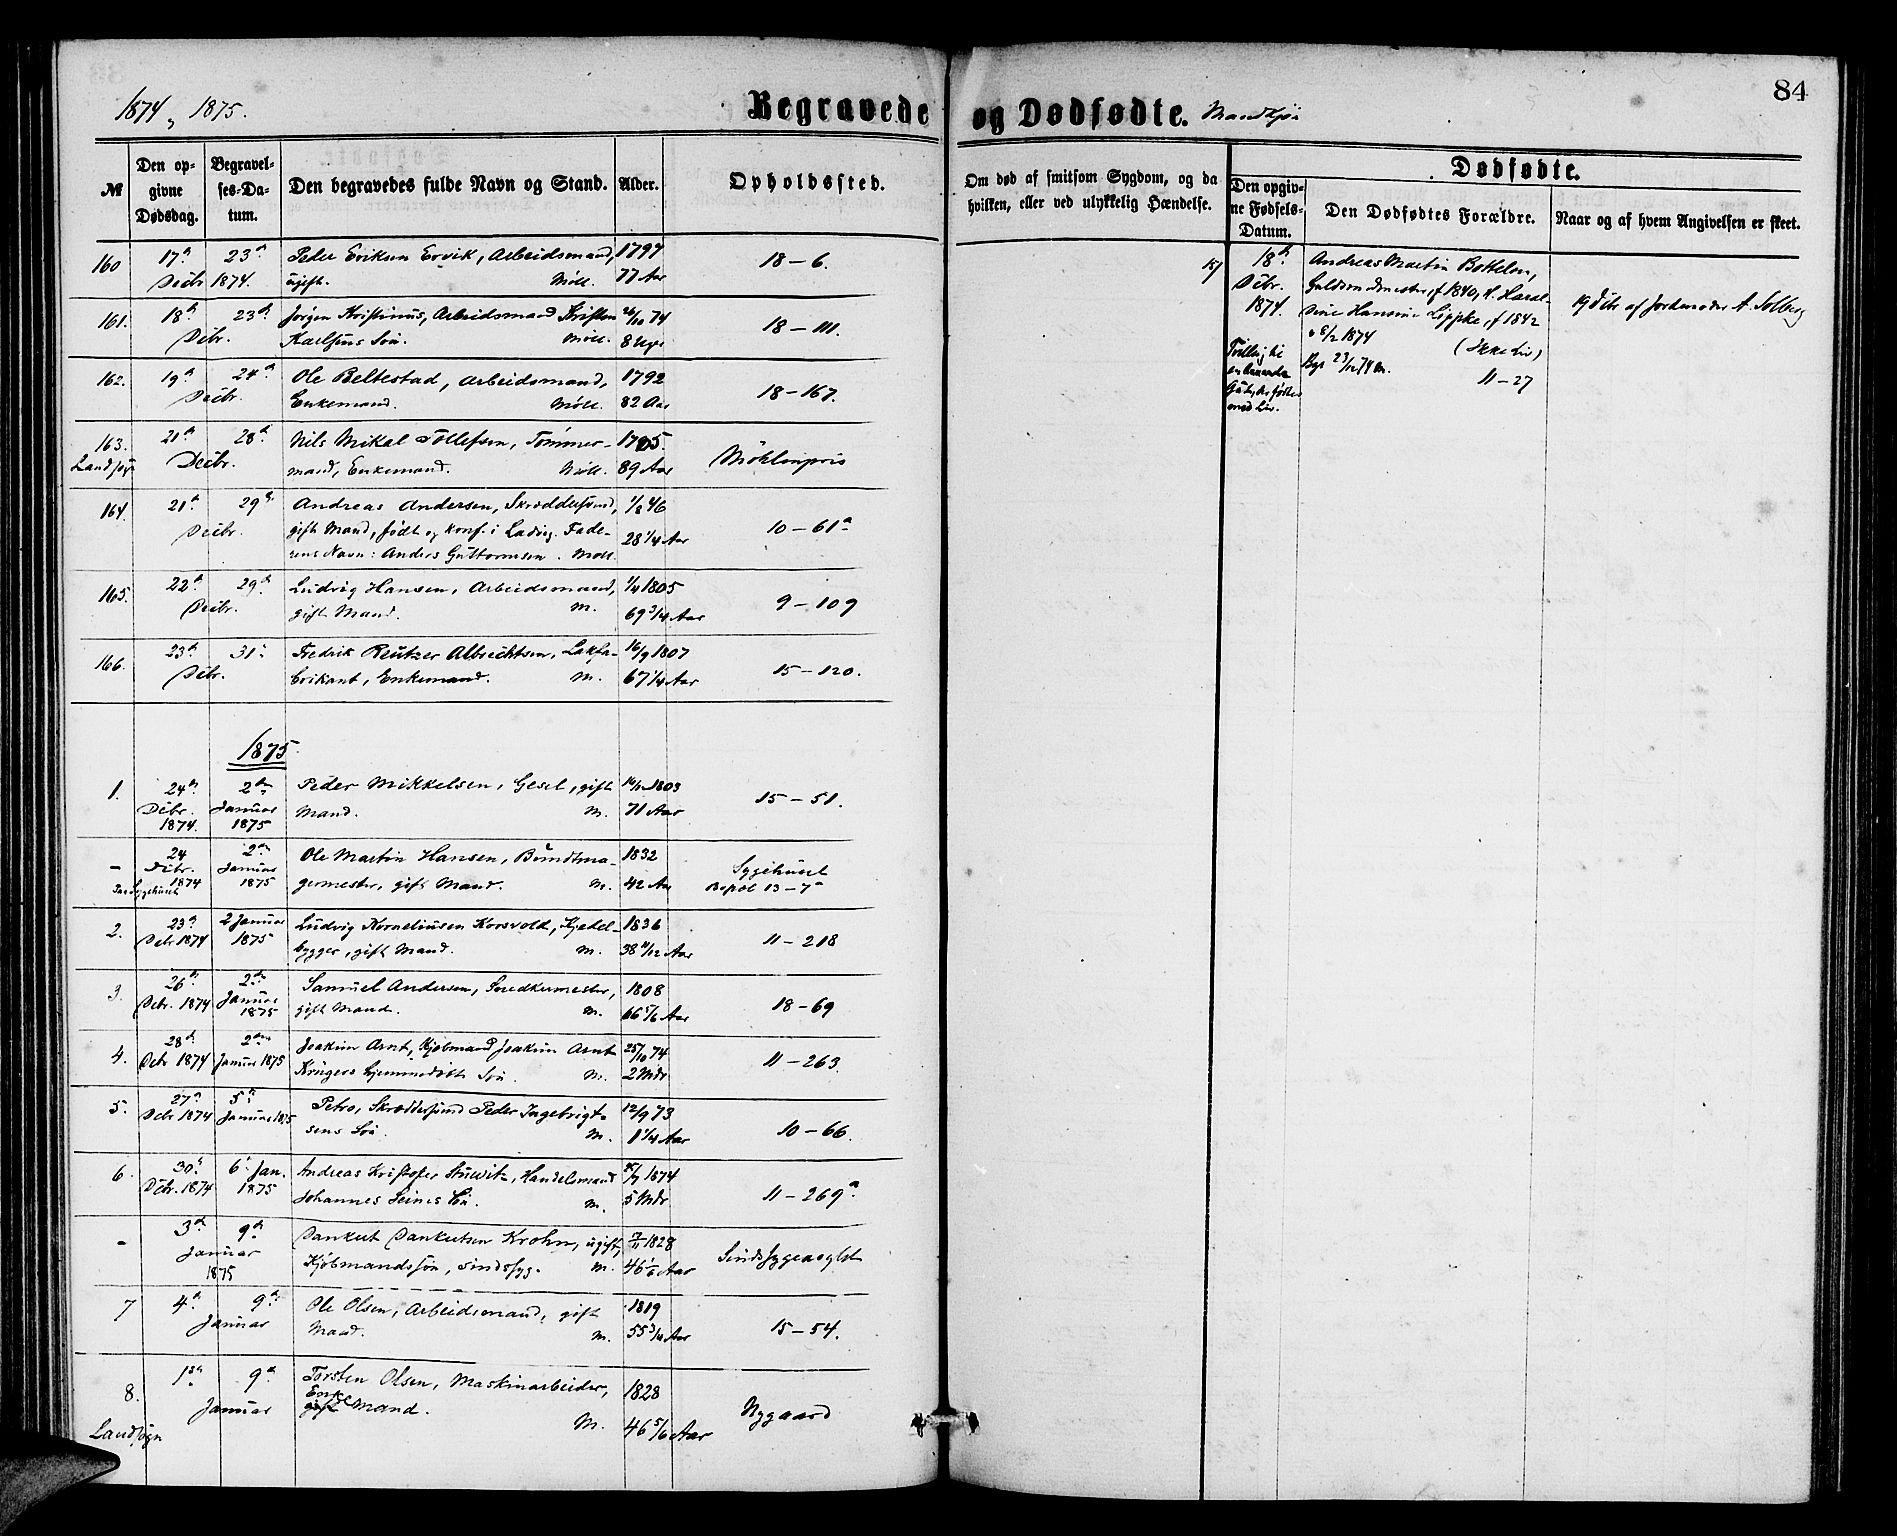 84
1874, 1875.
Begravede og Dødfødte. Mandkjøn
№
Den opgivne Dødsdag.
Begravelses-Datum.
Den begravedes fulde Navn og Stand.
Alder.
Opholdssted.
Om død af smitsom Sygdom, og da
hvilken, eller ved ulykkelig Hændelse.
Dødfødte.
Den opgivne Fødsels-Datum.
Den Dødfødtes Forældre.
Naar og af hvem Angivelsen er skeet.
160 17de 23de Peder Eriksen Ervik, Arbeidsmand, 1797 18-6.
Decbr 1874. ugift. Möll. 77 Aar
161. 18de 23de Jørgen Kristinius, Arbeidsmand Kristen 74 18-111.
Decbr. Karlsens Søn. Möll. 8 Uger
162. 19de 24de Ole Beltestad, Arbeidsmand, 1792 18-167.
Decbr. Enkemand. Möll. 82 Aar
163. 21de 28de Nils Mikal Tollefsen, Tömmer-
Landsogn Decbr. mand, Enkemand. Möll. 89 Aar Möhlenpris
164. 21de 29de Andreas Andersen, Skræddersvend, 1/8 46
Decbr. gift Mand, født og konf. i Ladvig. Fade- 28 1/4 Aar 10-61a
rens Navn: Anders Guttormsen. Möll.
165. 22de 29de Ludvig Hansen, Arbeidsmand, 1/4 1805
Decbr. gift Mand. M. 69 3/4 Aar 9-109
166. 23de 31te Fredrik Reutzer Albrechtsen, Lakfa- 16/9 1807
Decbr. brikant, Enkemand. M. 67 1/4 Aar 15-120.
1875.
1. 24de 2den Peder Mikkelsen, Gesel, gift 1803 15-51.
Decbr. 1874. Januar 1875 Mand. M. 71 Aar
- 24 2den Ole Martin Hansen, Bundtma- 1832 Sygehuset
Decbr. 1874 Januar 1875 germester, gift Mand. M. 42 Aar Bopæl 13-7a
Paa Sygehuset
2. 23de 2 Januar Ludvig Korneliusen Korsvold, Kjedel- 1836
Decbr 1874 1875 bygger, gift Mand. M. 38 Aar 11-218
3. 26de 2den Samuel Andersen, Snedkermester, 1808
Decbr. 1874 Januar 1875 gift Mand. M. 66 5/6 Aar 18-69
4. 28de 2den Joakim Arnt, Kjøbmand Joakim Arnt 25/10 74
Decbr 1874 Januar 1875 Krügers hjemmedøbte Søn. M. 2 Mdr 11-263.
5. 27de 5te Petro, Skræddersvend Peder Ingebrigt- 12/9 73
Decbr 1874 Januar 1875 sens Søn. M. 1 1/4 Aar 10-66.
6. 30te 6te Jan. Andreas Kristofer Stuwitz, Handelsmand 1874
Decbr. 1874 1875 Johannes Seines Søn. M. 5 Mdr 11-269a
- 3die 9de Dankert Dankertsen Krohn, ugift, 1828
Januar 1875 Kjøbmandssøn, sindssyg. M. 46 1/6 Aar Sindssygeasylet
7 4de 9de Ole Olsen, Arbeidsmand, gift 1819
Januar Mand. M. 55 3/4 Aar 15-54.
8. 1ste 9de Torsten Olsen, Maskinarbeider, 1828
Landsogn Januar gift Enkemand. M. 46 5/6 Aar Nygaard
15/ 18de Decbr. 1874.
Andreas Martin Bottolen,
Guldsmedmester, f 1840, H. Haral-
dine Hansine Lippke, f 1842
8/2 1874 (Ikke Liv)
11-27
Tvilling til
en
født
med Liv.
19 Decbr af Jordmoder A. Solberg